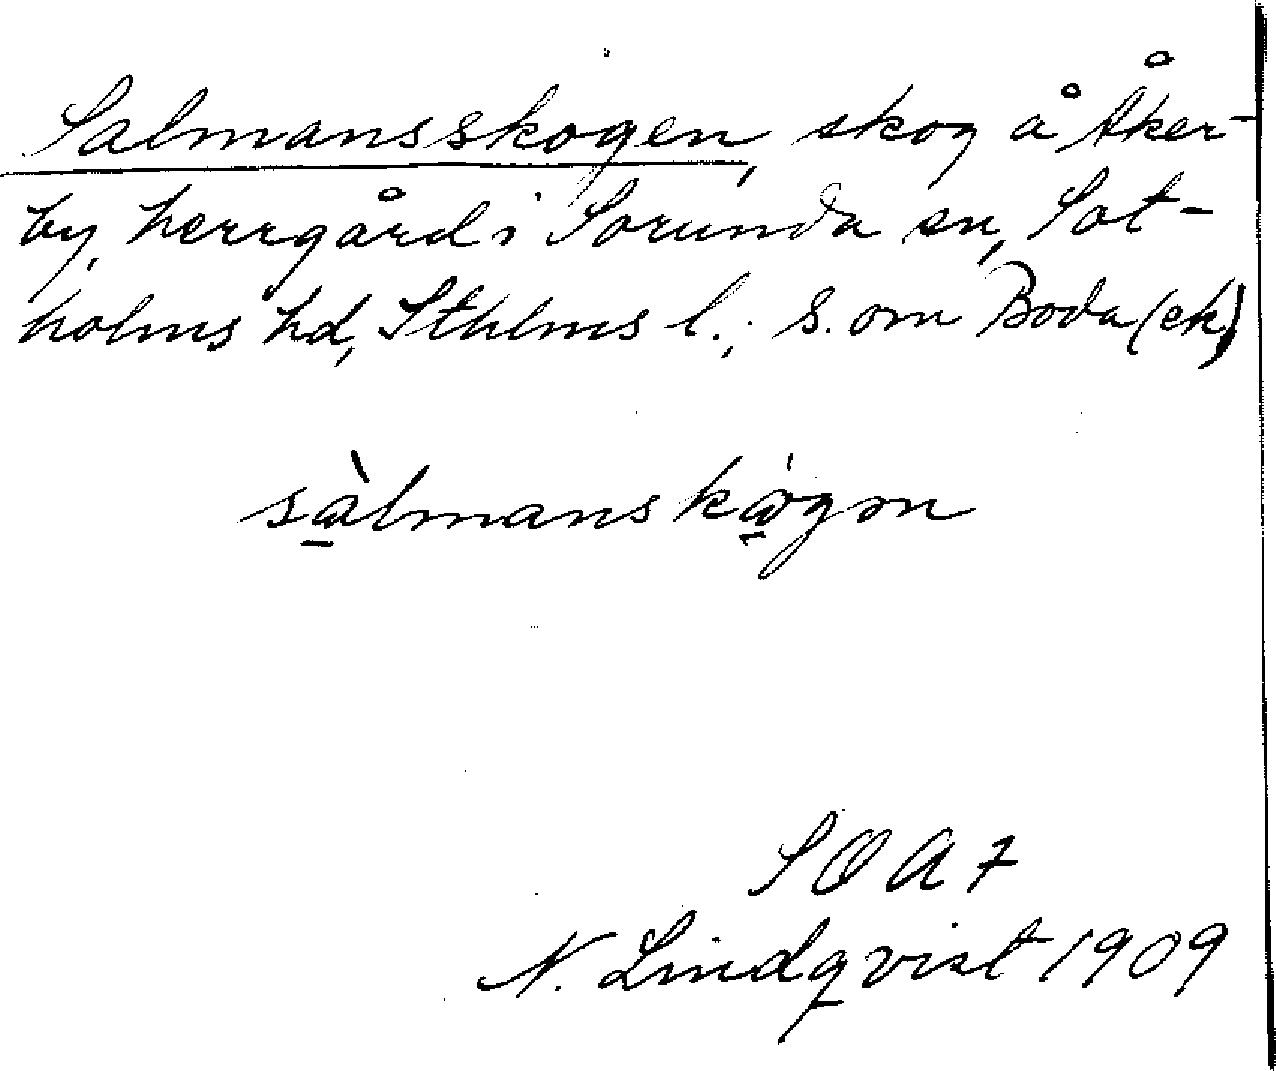 Salmansskogen, skog å Åker-
by, herrgård i Sorunda sn, Sot-
holms hd, Sthlms l.; S. om Boda (ek)
sàlmanskógən
SOA 7
N. Lindqvist 1909